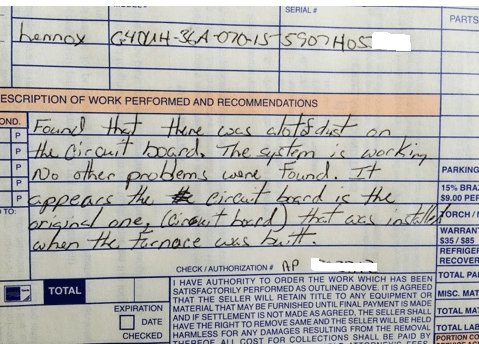 SERIAL #
PARTS
Lennox G40UH-36A-070-15 5907H05
ESCRIPTION OF WORK PERFORMED AND RECOMMENDATIONS
OND.
P Found that there was alot of dust on
P the circuit board. The system is working
P No other problems were found. It
P appears the circuit board is the
P original one, (circuit board) that was installed
TO:
when the furnace was built.
PARKING
15% BRA
$9.00 PER
TORCH / N
WARRANT
$35 / $85
REFRIGER
RECOVER
CHECK / AUTHORIZATION # AP
TOTAL
EXPIRATION
DATE
CHECKED
I HAVE AUTHORITY TO ORDER THE WORK WHICH HAS BEEN
SATISFACTORILY PERFORMED AS OUTLINED ABOVE. IT IS AGREED
THAT THE SELLER WILL RETAIN TITLE TO ANY EQUIPMENT OR
MATERIAL THAT MAY BE FURNISHED UNTIL FINAL PAYMENT IS MADE
AND IF SETTLEMENT IS NOT MADE AS AGREED, THE SELLER SHALL
HAVE THE RIGHT TO REMOVE SAME AND THE SELLER WILL BE HELD
HARMLESS FOR ANY DAMAGES RESULTING FROM THE REMOVAL
THEREOF. ALL COST FOR COLLECTIONS SHALL BE PAID BY
TOTAL PA
MISC. MAT
TOTAL MAT
TOTAL LAB
PORTION CO